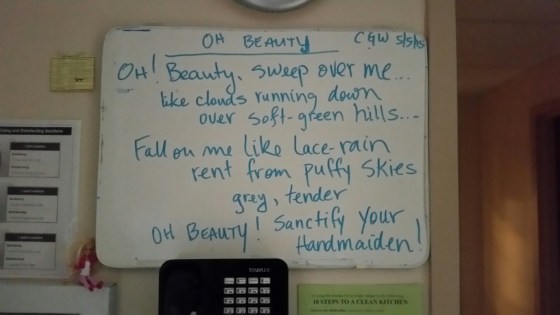 OH BEAUTY
CGW 5/5/15
OH! Beauty, sweep over me...
like clouds running down
over soft-green hills...
Fall on me like lace-rain
rent from puffy skies
grey, tender
OH BEAUTY! Sanctify Your
Handmaiden!
10 STEPS TO A CLEAN KITCHEN